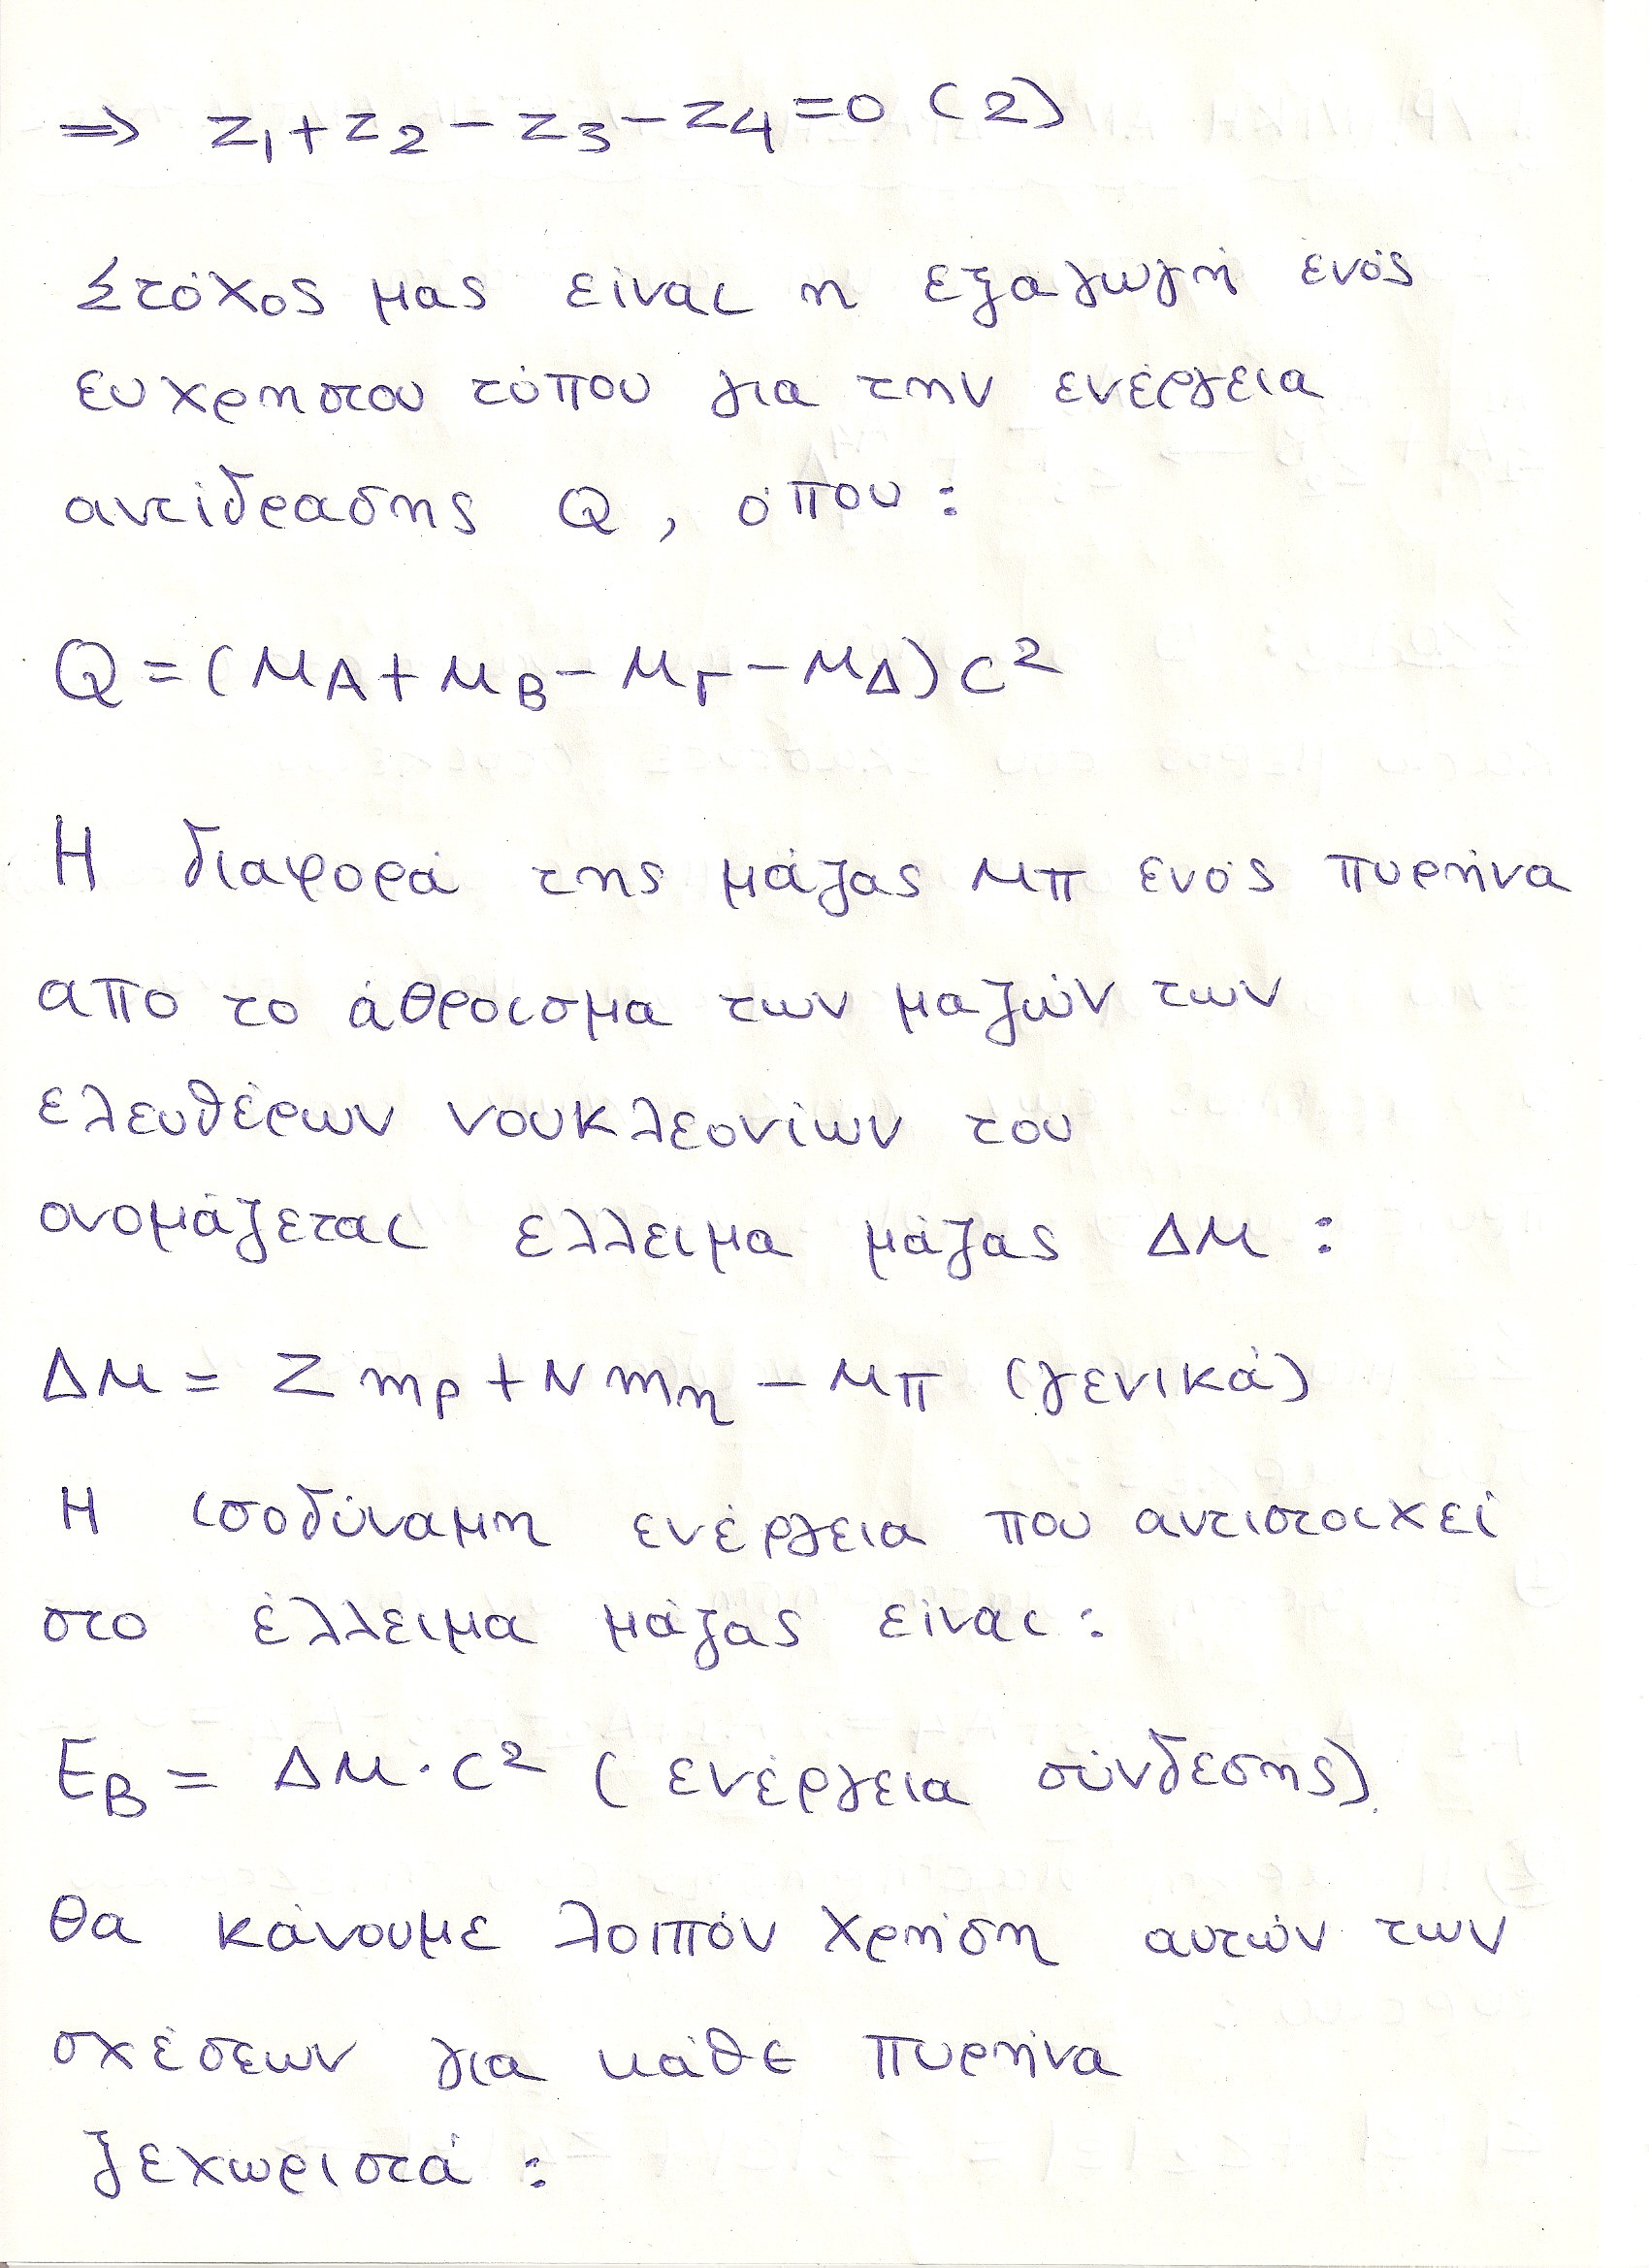 ⇒ Z₁+Z₂-Z₃-Z₄=0 (2)
Στόχος μας είναι η εξαγωγή ενός
ευχρηστου τύπου για την ενέργεια
αντίδρασης Q, όπου:
Q=(Μ_Α+Μ_Β-Μ_Γ-Μ_Δ)c²
Η διαφορά της μάζας Μπ ενός πυρήνα
απο το άθροισμα των μαζών των
ελευθέρων νουκλεονίων του
ονομάζεται ελλειμα μάζας ΔΜ:
ΔΜ= Ζ m_p+N m_n - Μπ (γενικά)
Η ισοδύναμη ενέργεια που αντιστοιχεί
στο έλλειμα μάζας είναι:
E_B= ΔΜ·c² (ενέργεια σύνδεσης).
Θα κάνουμε λοιπόν χρήση αυτών των
σχέσεων για κάθε πυρήνα
ξεχωριστά: